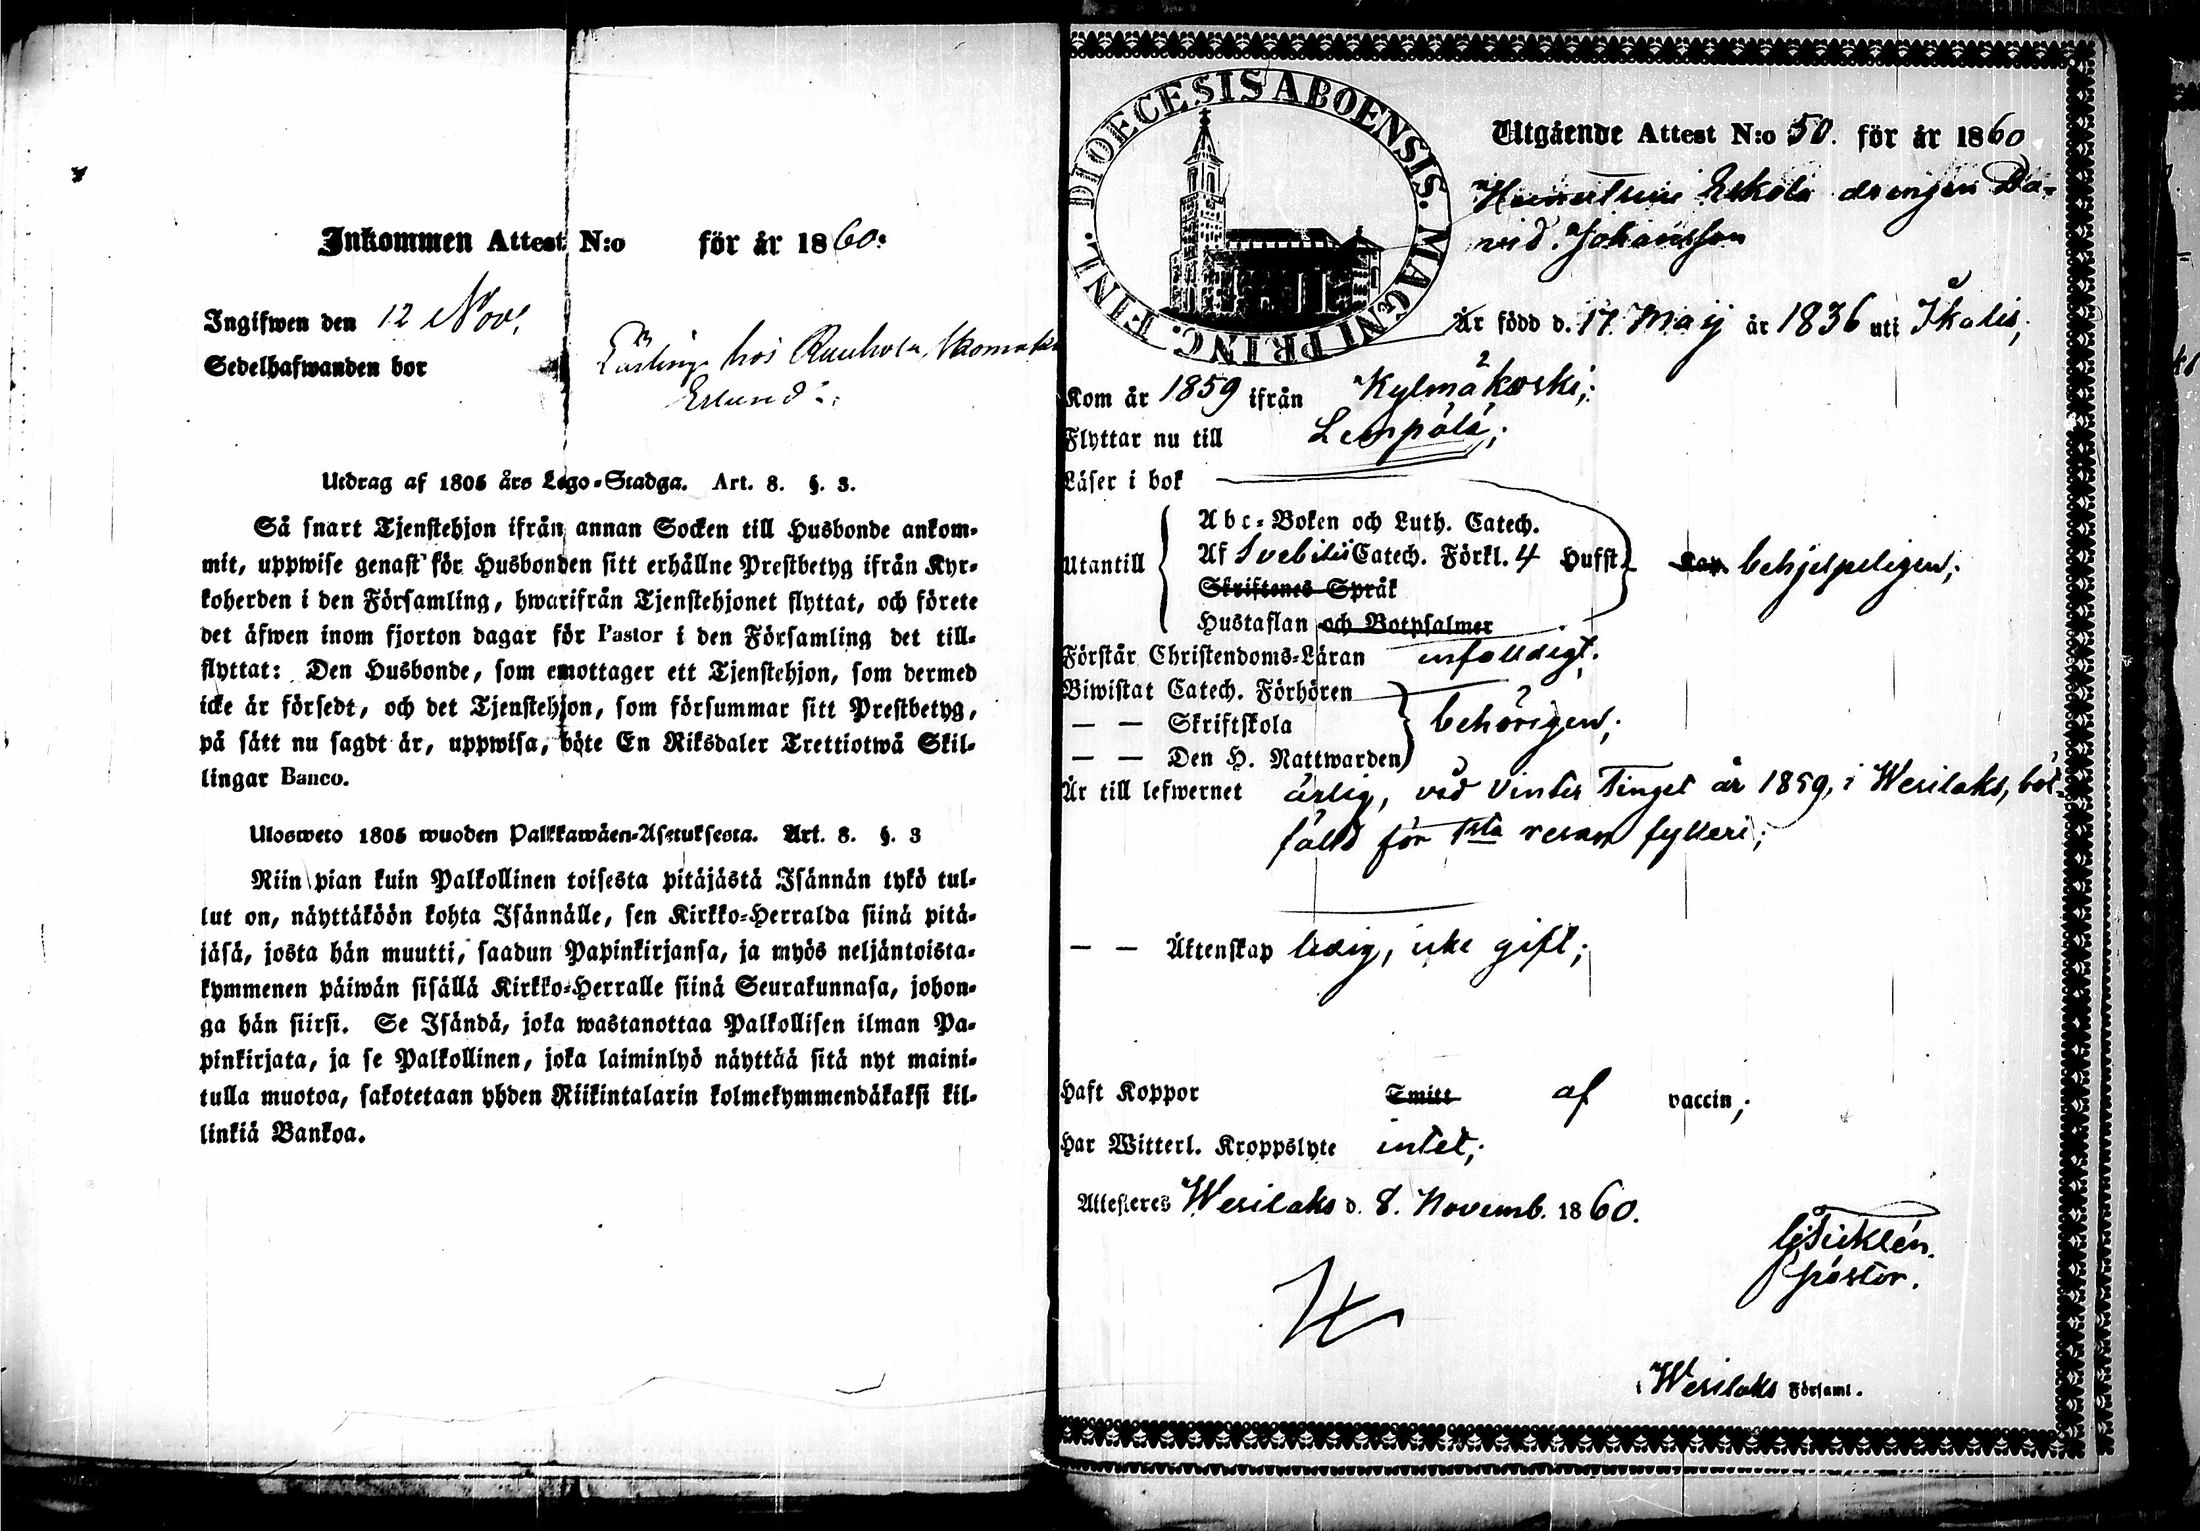 Inkommen Attest N:o för år 1860.
Ingifwen den 12 Nov.
Sedelhafwanden bor Lärling hos Rauhola Skomak.
Erlund.
Utdrag af 1805 års Lego-Stadga. Art. 8. §. 3.
Så snart Tjenstehjon ifrån annan Socken till Husbonde ankom-
mit, uppwise genast för Husbonden sitt erhållne Prestbetyg ifrån Kyr-
koherden i den Församling, hwarifrån Tjenstehjonet flyttat, och förete
det äfwen inom fjorton dagar för Pastor i den Församling det till-
flyttat: Den Husbonde, som emottager ett Tjenstehjon, som dermed
icke är försedt, och det Tjenstehjon, som försummar sitt Prestbetyg,
på sätt nu sagdt är, uppwisa, böte En Riksdaler Trettiotwå Skil-
lingar Banco.
Ulosweto 1805 wuoden Palkkawäen-Asetuksesta. Art. 8. §. 3
Niin pian kuin Palkollinen toisesta pitäjästä Isännän tykö tul-
lut on, näyttäköön kohta Isännälle, sen Kirkko-Herralda siinä pitä-
jäsä, josta hän muutti, saadun Papinkirjansa, ja myös neljäntoista-
kymmenen päiwän sisällä Kirkko-Herralle siinä Seurakunnasa, johon-
ga hän siirsi. Se Isändä, joka wastanottaa Palkollisen ilman Pa-
pinkirjata, ja se Palkollinen, joka laiminlyö näyttää sitä nyt maini-
tulla muotoa, sakotetaan yhden Riikintalarin kolmekymmendäkaksi kil-
linkiä Bankoa.
DIOECESIS ABOENSIS. MAGNI PRINC. FINL.
Utgående Attest N:o 50. för år 1860
Eskola drengen Da-
vid Johansson
Är född d. 17. Maij år 1836 uti Ikalis;
Kom år 1859 ifrån Kylmäkoski;
Flyttar nu till Lempälä;
Läser i bok
Abc-Boken och Luth. Catech.
Utantill Af Svebilii Catech. Förkl. 4 Hufst. behjelpeligen;
Skriftenes Språk
Hustaflan och Botpsalmer
Förstår Christendoms-Läran enfalldigt.
Biwistat Catech. Förhören
— — Skriftskola behörigen;
— — Den H. Nattwarden
Är till lefwernet ärlig, vid Vinter Tinget år 1859, i Wesilaks, böt-
fälld för 1sta resan fylleri;
— — Äktenskap ledig, icke gift;
Haft Koppor Smitt af vaccin;
Har Witterl. Kroppslyte intet;
Attesteres Wesilaks d. 8. Novemb. 1860.
Pastor.
i Wesilaks Församl.